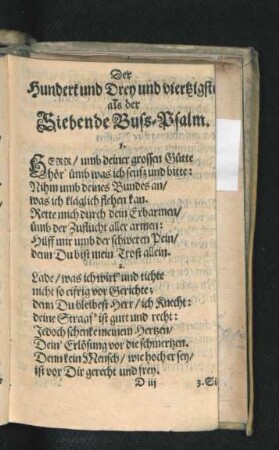 Der
Hundert und Drey und viertzigste
als der
Siebende Buß-Psalm.
1.
HERR / umb deiner grossen Gütte
hör' umb was ich seufz und bitte:
Nihm umb deines Bundes an /
was ich kläglich flehen kan.
Rette mich durch dein Erbarmen /
umb der Zuflucht aller armen:
Hülff mir umb der schweren Pein /
denn Du bist mein Trost allein.
2.
Lade / was ich wirk' und tichte
nicht so eifrig vor Gerichte:
denn Du bleibest Herr / ich Knecht:
deine Straaf' ist gutt und recht:
Jedoch schenke meinem Hertzen /
Dein' Erlösung vor die schmertzen.
Denn kein Mensch / wie hoch er sey /
ist vor Dir gerecht und frey.
D iij 3.